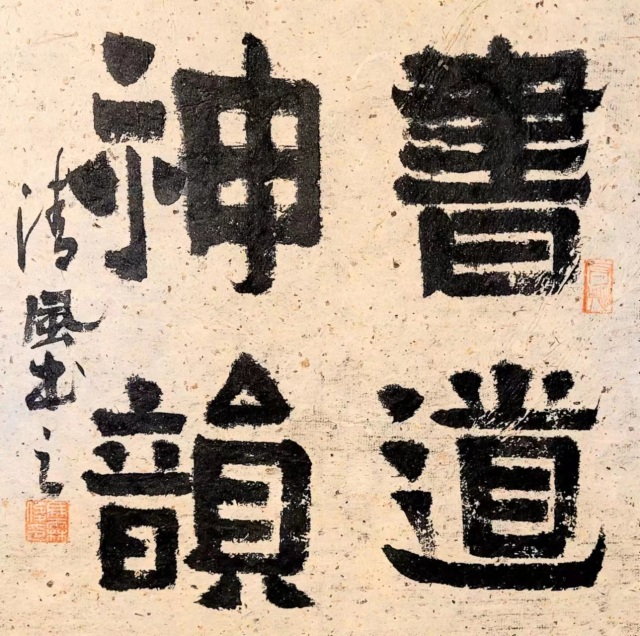 書道
神韻
清風书之